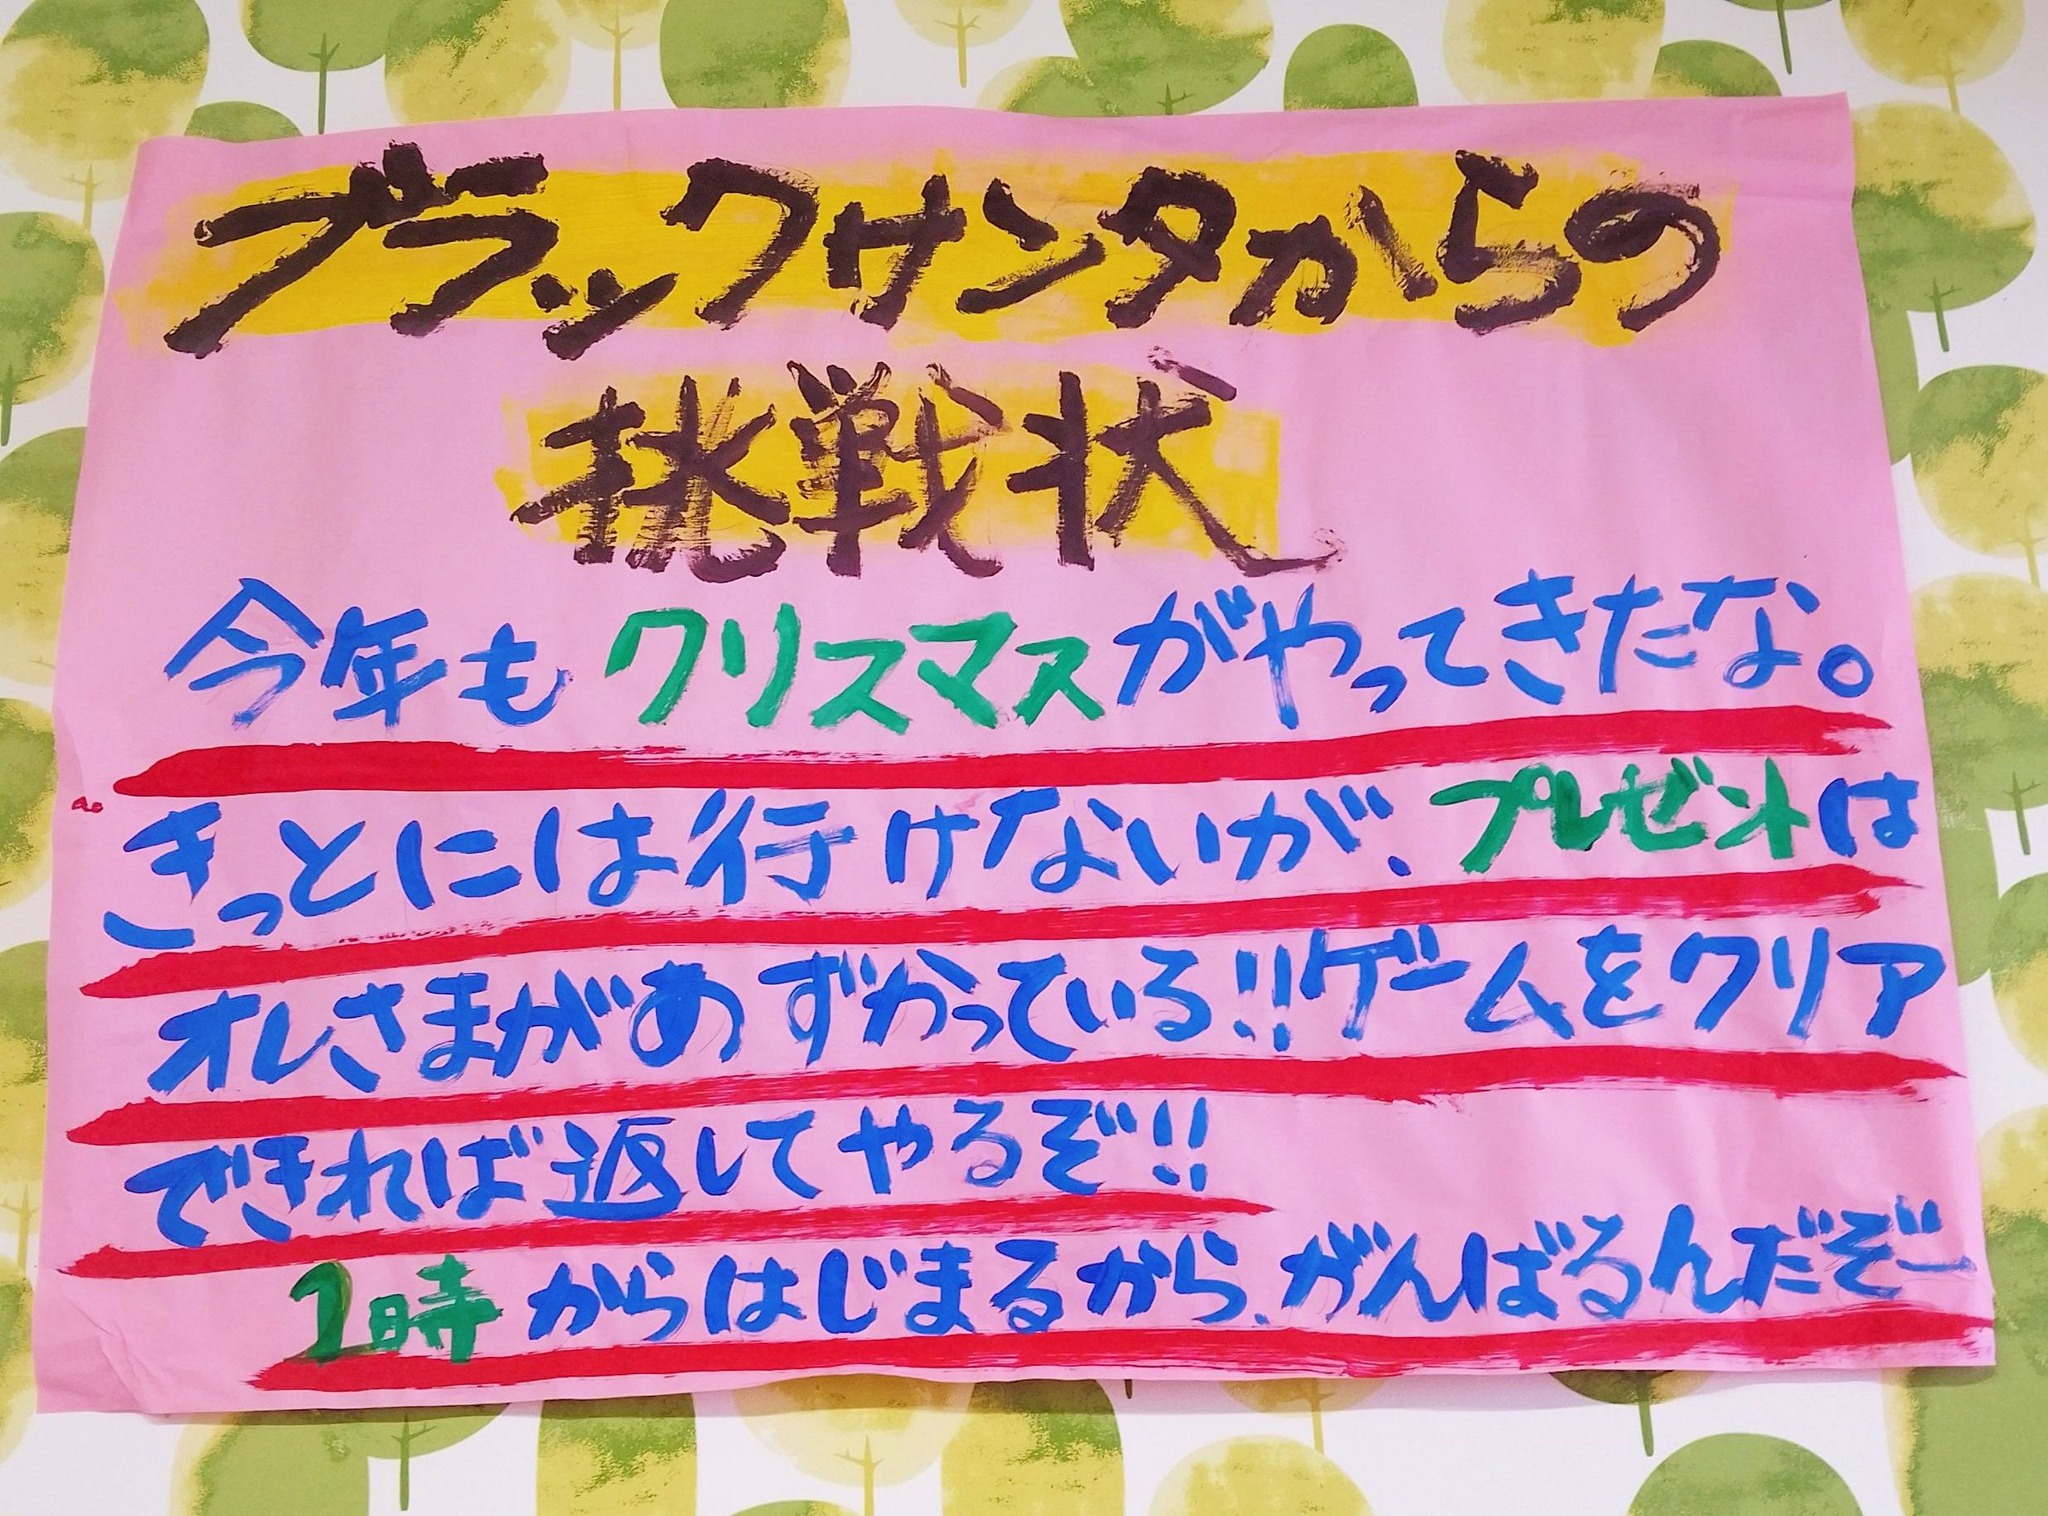 ブラックサンタからの
挑戦状
今年もクリスマスがやってきたな。
きっとには行けないが、プレゼントは
オレさまがあずかっている!!ゲームをクリア
できれば返してやるぞ!!
2時からはじまるから、がんばるんだぞー